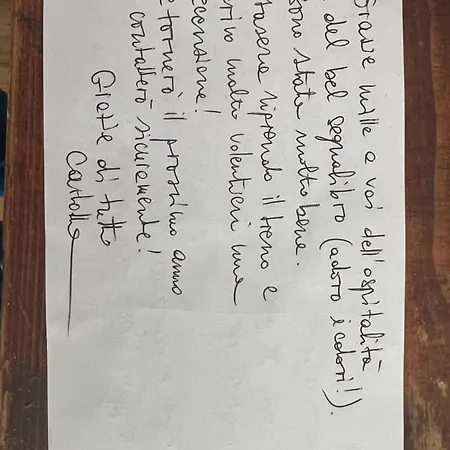 Grazie mille a voi dell'ospitalità
del bel segnalibro (adoro i colori!).
sono stata molto bene.
stasera riprendo il treno e
molto volentieri una
recensione!
e tornerò il prossimo anno
contatterò sicuramente!
Grazie di tutto